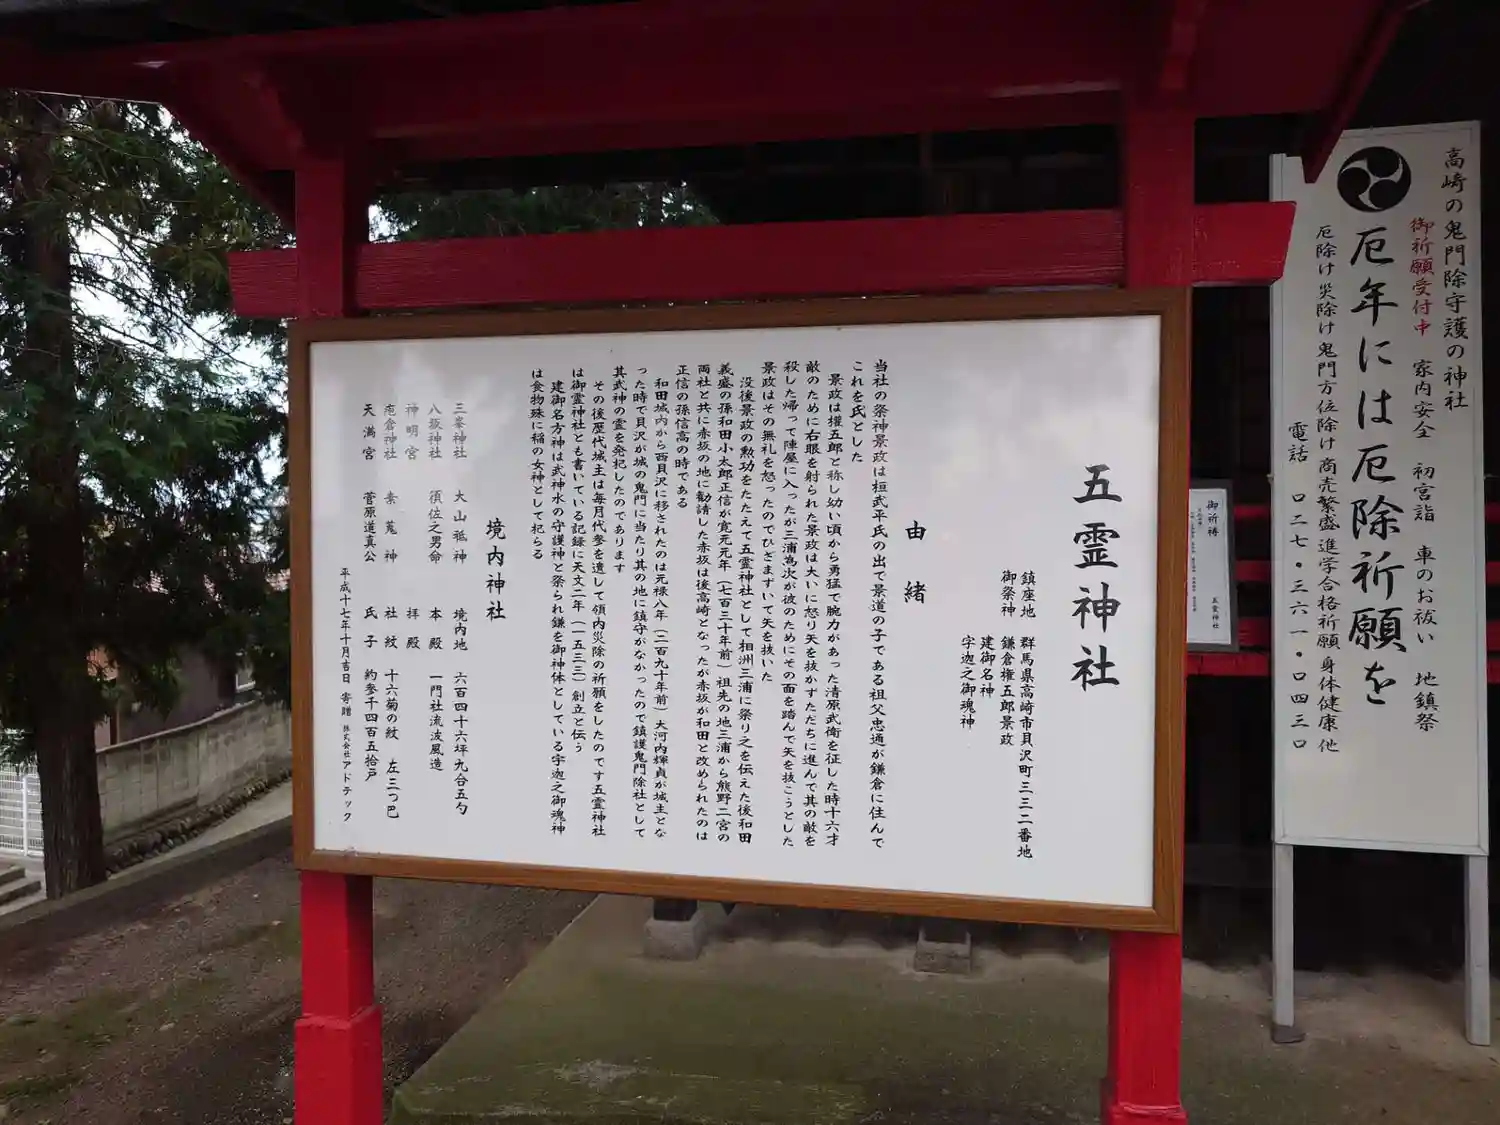 五霊神社
鎮座地 群馬県高崎市貝沢町三三二番地
御祭神 鎌倉権五郎景政
建御名神
宇迦之御魂神
由緒
当社の祭神景政は桓武平氏の出で景道の子である祖父忠通が鎌倉に住んで
これを氏とした
景政は権五郎と称し幼い頃から勇猛で腕力があった清原武衡を征した時十六才
敵のために右眼を射られた景政は大いに怒り矢を抜かずただちに進んで其の敵を
殺した帰って陣屋に入ったが三浦為次が彼のためにその面を踏んで矢を抜こうとした
景政はその無礼を怒ったのでひざまずいて矢を抜いた
没後景政の勲功をたたえて五霊神社として相洲三浦に祭り之を伝えた後和田
義盛の孫和田小太郎正信が寛元元年(七百三十年前)祖先の地三浦から熊野二宮の
両社と共に赤坂の地に勧請した赤坂は後高崎となったが赤坂が和田と改められたのは
正信の孫信高の時である
和田城内から西貝沢に移されたのは元禄八年(二百九十年前)大河内輝貞が城主とな
った時で貝沢が城の鬼門に当たり其の地に鎮守がなかったので鎮護鬼門除社として
其武神の霊を発祀したのであります
その後歴代城主は毎月代参を遣して領内災除の祈願をしたのです五霊神社
は御霊神社とも書いている記録に天文二年(一五三三)創立と伝う
建御名方神は武神水の守護神と祭られ鎌を御神体としている宇迦之御魂神
は食物殊に稲の女神として祀らる
境内神社
三峯神社 大山祗神 境内地 六百四十六坪九合五勺
八坂神社 須佐之男命 本殿 一門社流波風造
神明宮 拝殿
疱倉神社 素菟神 社紋 十六菊の紋 左三つ巴
天満宮 菅原道真公 氏子 約参千四百五拾戸
平成十七年十月吉日 寄贈 株式会社アドテック
高崎の鬼門除守護の神社
御祈願受付中 家内安全 初宮詣 車のお祓い 地鎮祭
厄年には厄除祈願を
厄除け 災除け 鬼門方位除け 商売繁盛 進学合格祈願 身体健康 他
電話 〇二七・三六一・〇四三〇
御祈祷
五霊神社